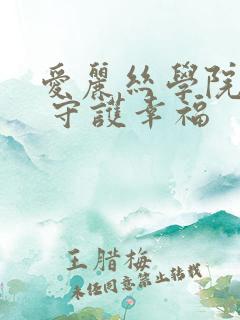 愛麗絲學院
守護幸福
王腊梅
未经同意禁止转载